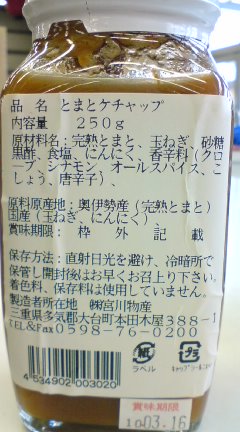 品 名 とまとケチャップ
内容量 250g
原材料名:完熟とまと、玉ねぎ、砂糖
黒酢、食塩、にんにく、香辛料(クロ
ーブ、シナモン、オールスパイス、こ
しょう、唐辛子)、
原料原産地:奥伊勢産(完熟とまと)
国産(玉ねぎ、にんにく)、
賞味期限: 枠 外 記 載
保存方法:直射日光を避け、冷暗所で
保管し開封後はお早くお召上り下さい。
着色料、保存料は使用していません。
製造者所在地 ㈱宮川物産
三重県多気郡大台町本田木屋388-1
TEL&Fax0598-76-0200
4 534902 003020
紙
ラベル
プラ
賞味期限
10.03.16